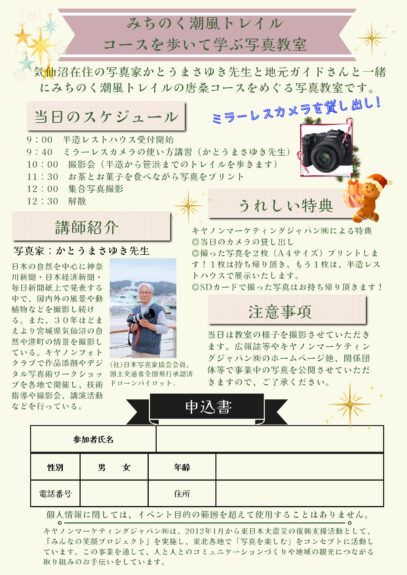 みちのく潮風トレイル
コースを歩いて学ぶ写真教室
気仙沼在住の写真家かとうまさゆき先生と地元ガイドさんと一緒
にみちのく潮風トレイルの唐桑コースをめぐる写真教室です。
当日のスケジュール
9：00　半造レストハウス受付開始
9：40　ミラーレスカメラの使い方講習（かとうまさゆき先生）
10：00　撮影会（半造から笹浜までのトレイルを歩きます）
11：30　お茶とお菓子を食べながら写真をプリント
12：00　集合写真撮影
12：30　解散
ミラーレスカメラを貸し出し!
講師紹介
写真家：かとうまさゆき先生
日本の自然を中心に神奈
川新聞・日本経済新聞・
毎日新聞紙上で発表する
中で、国内外の風景や動
植物などを撮影し続け
る。また、30年ほどま
えより宮城県気仙沼の自
然や港町の情景を撮影し
ている。キヤノンフォト
クラブで作品添削やデジ
タル写真術ワークショッ
プを各地で開催し、技術
指導や撮影会、講演活動
などを行っている。
(社)日本写真家協会会員。
国土交通省全国飛行承認済
ドローンパイロット。
うれしい特典
キヤノンマーケティングジャパン㈱による特典
◎当日のカメラの貸し出し
◎撮った写真を2枚（A4サイズ）プリントしま
す！1枚は持ち帰り頂き、もう1枚は、半造レス
トハウスで展示いたします。
◎SDカードで撮った写真はお持ち帰り頂きます！
注意事項
当日は教室の様子を撮影させていただき
ます。広報誌等やキヤノンマーケティン
グジャパン㈱のホームページ他、関係団
体等で事業中の写真を公開させていただ
きますので、ご了承ください。
申込書
参加者氏名
性別　男　女　年齢
電話番号　住所
個人情報に関しては、イベント目的の範囲を超えて使用することはありません。
キヤノンマーケティングジャパン㈱は、2012年1月から東日本大震災の復興支援活動として、
『みんなの笑顔プロジェクト』を実施し、東北各地で「写真を楽しむ」をコンセプトに活動し
ています。この事業を通して、人と人とのコミュニケーションづくりや地域の観光につながる
取り組みのお手伝いをしています。